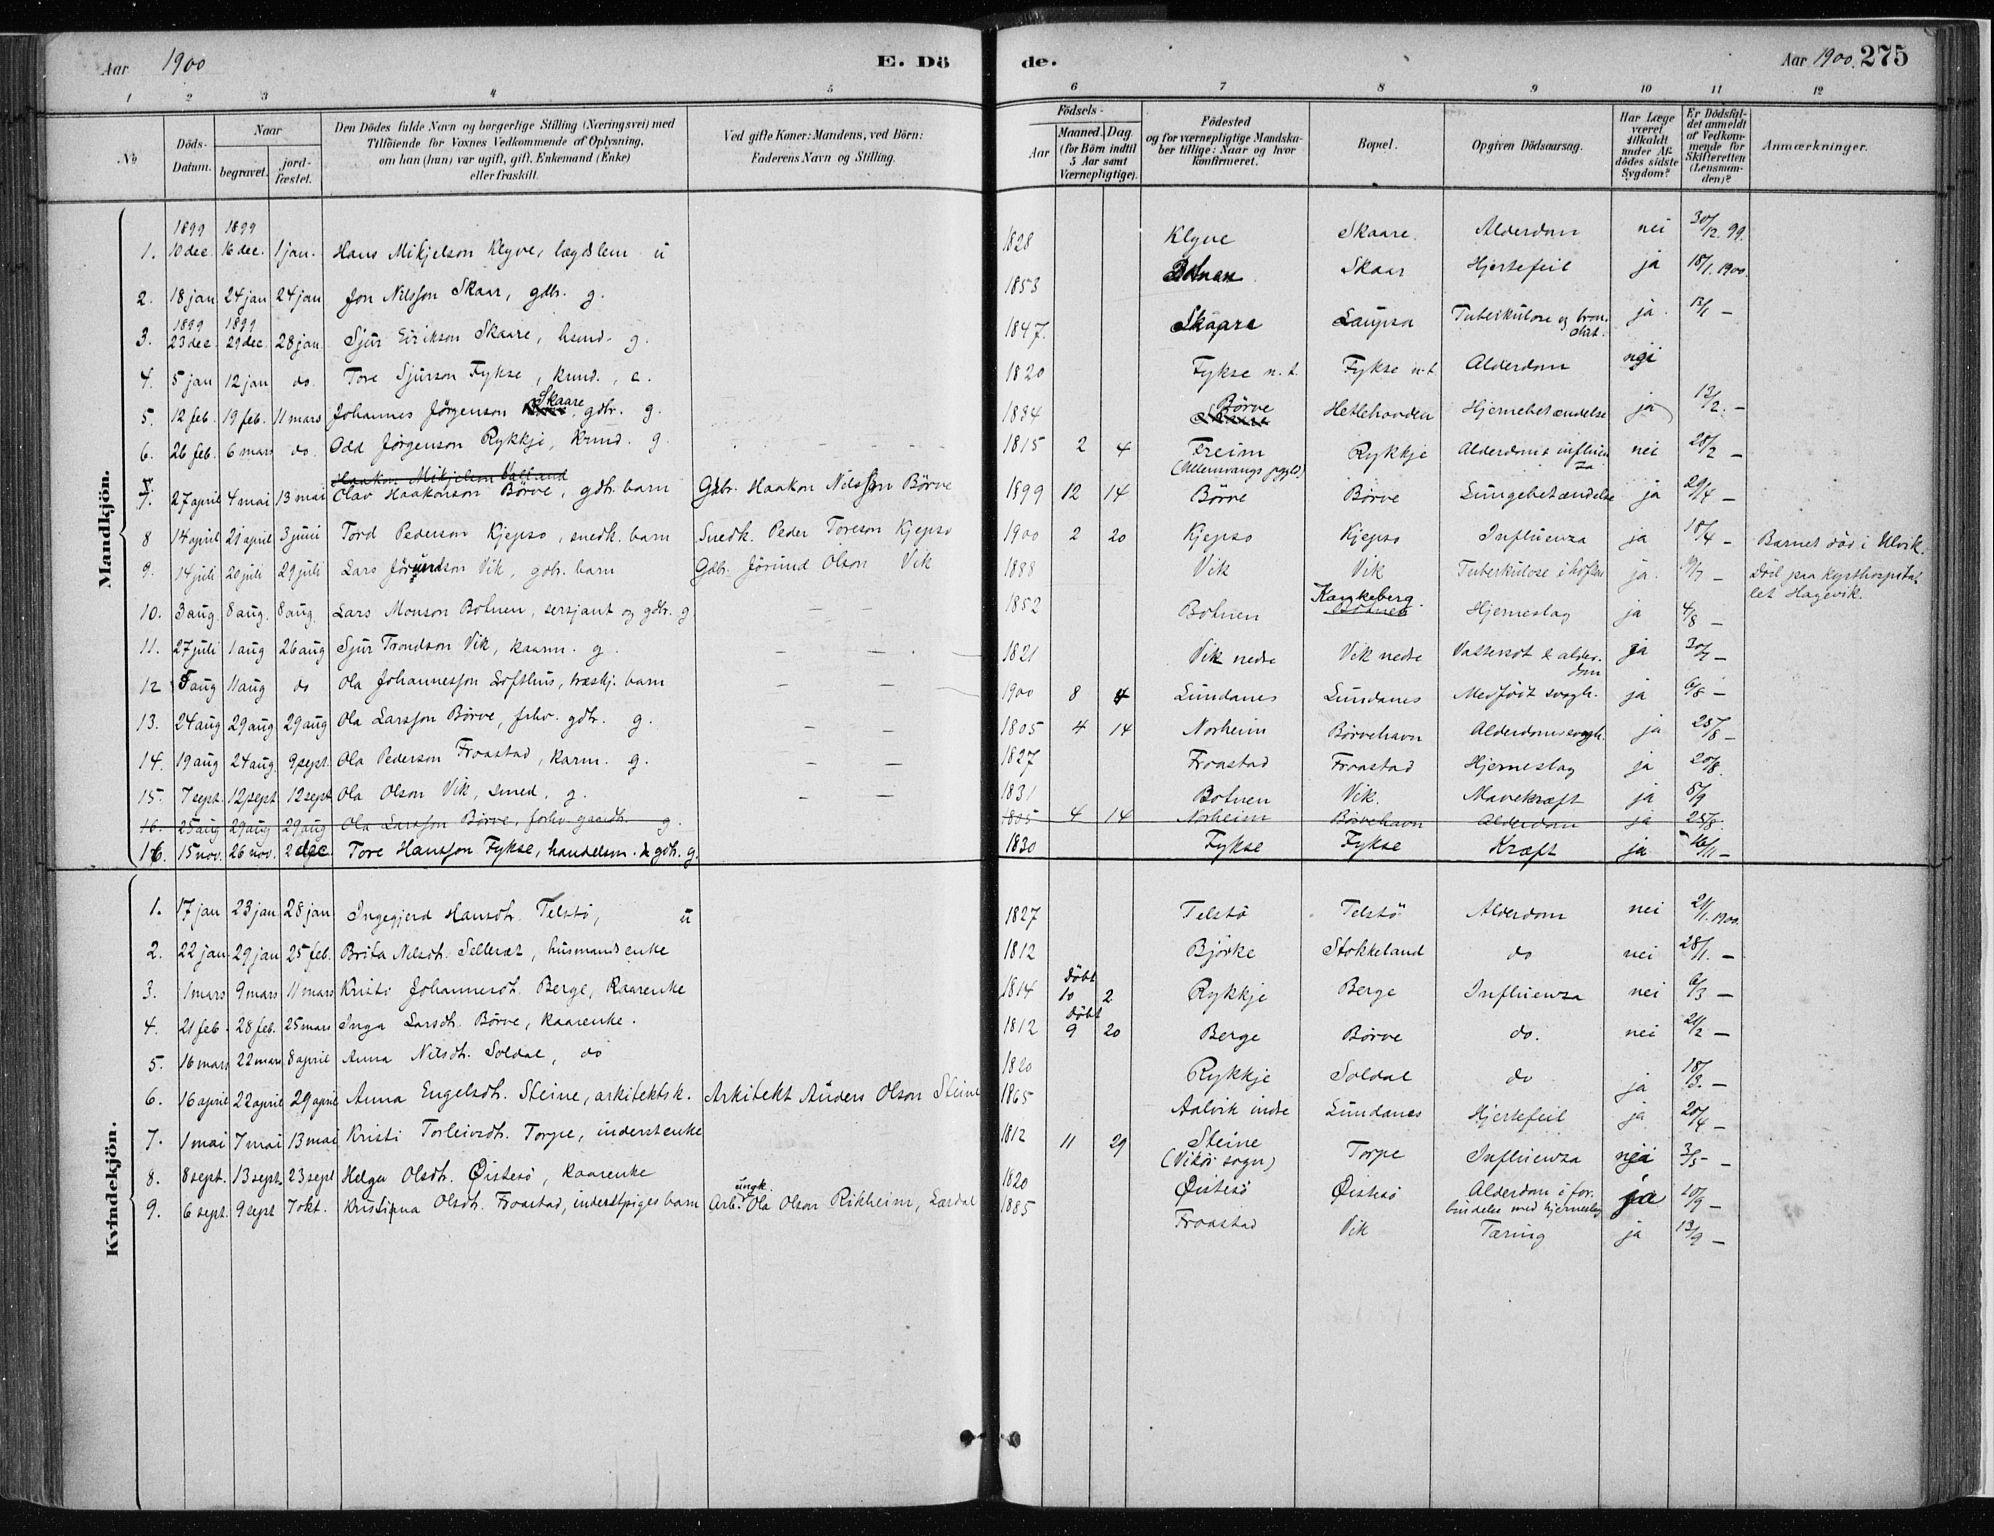 Aar 1900
E. Dö
de.
Aar 1900. 275
1 2 3 4 5 6 7 8 9 10 11 12
No
Döds-Datum.
Naar
begravet.
jord-fæstet.
Den Dödes fulde Navn og borgerlige Stilling (Næringsvei) med
Tilföiende for Voxnes Vedkommende af Oplysning,
om han (hun) var ugift, gift, Enkemand (Enke)
eller fraskilt.
Ved gifte Koner: Mandens, ved Börn:
Faderens Navn og Stilling.
Födsels-
Aar
Maaned. Dag.
(for Börn indtil
5 Aar samt
Værnepligtige).
Födested
og for værnepligtige Mandska-
ber tillige: Naar og hvor
konfirmeret.
Bopæl.
Opgiven Dödsaarsag.
Har Læge
været
tilkaldt
under Af-
dödes sidste
Sygdom?
Er Dödsfal-
det anmeldt
af Vedkom-
mende for
Skifteretten
(Lensman-
den)?
Anmærkninger.
Mandkjön.
1899 1899
1. 10 dec. 16 dec. 1 jan. Hans Mikjelson Klyve, lægdslem u 1828 Klyve Skaare. Alderdom nei 30/12. 99.
2. 18 jan 24 jan 24 jan Jon Nilsson Skaar, gdbr. g. 1853 Botnen Skaar Hjertefeil ja 18/1. 1900.
1899 1899
3. 23 dec 29 dec. 28 jan. Sjur Eirikson Skaare, husmd. g. 1847. Skaare Laupsa Tuberkulose og bron-
chit. ja. 13/1 —
4. 5 jan 12 jan do. Tore Sjurson Fykse, kmd., e. 1820 Fykse n.t. Fykse n.t Alderdom nei
5. 12 feb. 19 feb. 11 mars Johannes Jörgenson Skaare, gdbr. g. 1884 Börve Hetlehovden Hjernebetændelse ja 12/2. —
6. 26 feb. 6 mars do. Odd Jörgenson Rykkje, kmd. g. 1815 2 4 Freim Rykkje Alderdom & influen
za nei 28/2 —
(Ullensvangs pgjld)
Haakon Mikjelson
7. 27 april 4 mai 13 mai Olav Haakonson Börve, gdbr. barn Gdbr. Haakon Nilsson Börve 1899 12 14 Börve Börve Lungebetændelse ja 29/4 —
8 14 april 21 april 3 juni Tord Pederson Kjepso, snedk. barn Snedk. Peder Toreson Kjepso 1900 2 20 Kjepso Kjepso Influenza ja 18/4 — Barnet död i Ulvik.
9. 14 juli 20 juli 29 juli Lars Jörundson Vik, gdbr. barn Gdbr. Jörund Olson Vik 1888 Vik Vik Tuberkulose i hoften ja. 19/7 — Död paa kysthospita-
let Hagevik.
10. 3 aug 8 aug. 8 aug. Lars Monson Botnen, sersjant og gdbr. g — — 1852 Botnen Kaupkeberg. Botnen Hjerneslag ja 4/8 —
11. 27 juli 1 aug 26 aug Sjur Trondson Vik, kaarm. g. — — 1821 Vik nedre Vik nedre Vattersot & alder-
dom ja 30/7 —
12 5 aug 11 aug do Ola Johannesson Lofthus, træskj. barn — — 1900 8 4 Lundanes Lundanes Medfödt svagh. ja 6/8 —
13. 24 aug 29 aug 29 aug Ola Larsson Börve, forhv. gdbr. g. — — 1805 4 14 Norheim Börvehavn Alderdomssvagh. ja 25/8 —
14. 19 aug 24 aug. 9 sept. Ola Pederson Froastad, karm. g. — — 1827 Froastad Froastad Hjerneslag ja 20/8.
15. 7 sept. 12 sept 12 sept Ola Olson Vik, smed, g. — — 1831 Botnen Vik. Mavekræft ja 8/9
16. 25 aug 29 aug 29 aug Ola Larsson Börve, forhv gaardbr. g. 1805 4 14 Norheim Börvehavn Alderdom ja 25/8.
16. 15 nov. 26 nov. 2 dec. Tore Hansson Fykse, handelsm. & gdbr. g. 1830 Fykse Fykse Kræft ja 16/11 —
Kvindekjön.
1. 17 jan 23 jan 28 jan Ingegjerd Hansdtr. Telstö, u 1827 Telstö Telstö Alderdom nei 21/1. 1900.
2. 22 jan. 29 jan 25 feb. Brita Nilsdtr. Selleræt, husmandsenke 1812 Björke Stokkeland do nei 28/1. —
3. 1 mars 9 mars 11 mars Kristi Johannesdtr. Berge, Kaarenke 1814 döbt 10 2 Rykkje Berge Influenza nei 6/3 —
4. 21 feb. 28 feb. 25 mars Inga Larsdtr. Börve, kaarenke. 1812 döbt 9 20 Berge Börve do. nei 21/2 —
5. 16 mars 22 mars 8 april Anna Nilsdtr. Soldal, do 1820 Rykkje Soldal do ja 18/3. —
6. 16 april 22 april 29 april Anna Engelsdtr. Steine, arkitektsk. Arkitekt Anders Olson Steine 1865 Aalvik indre Lundanes Hjertefeil ja 20/4 —
7. 1 mai 7 mai 13 mai Kristi Torleivsdtr. Torpe, inderstenke 1812 11 29 Steine
(Vikör sogn) Torpe Influenza nei 3/5 —
8. 8 sept. 13 sept. 23 sept Helga Olsdtr. Öistesö, kaarenke 1820 Öistesö Öistesö Alderdom i for-
bindelse med hjerneslag ja 10/9 —
9. 6 sept. 9 sept 7 okt. Kristiana Olsdtr. Froastad, inderstpiges barn Arb. ungk. Ola Olson Rikheim, Lærdal 1885 Froastad Vik Tæring ja 13/9 —